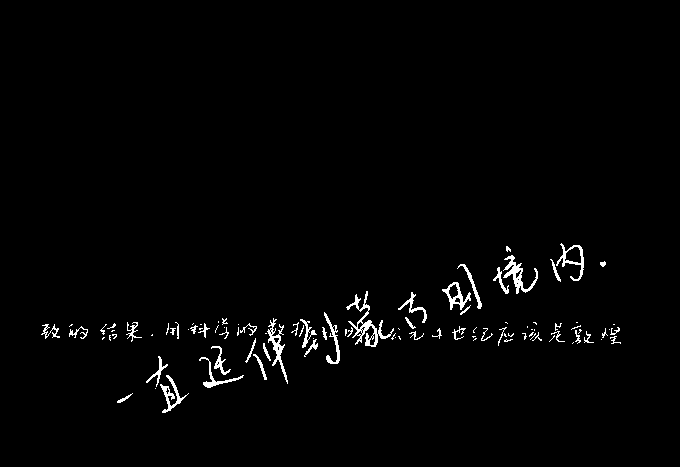 致的结果.用科学的数据证明公元十世纪应该是敦煌
一直延伸到蒙古国境内.